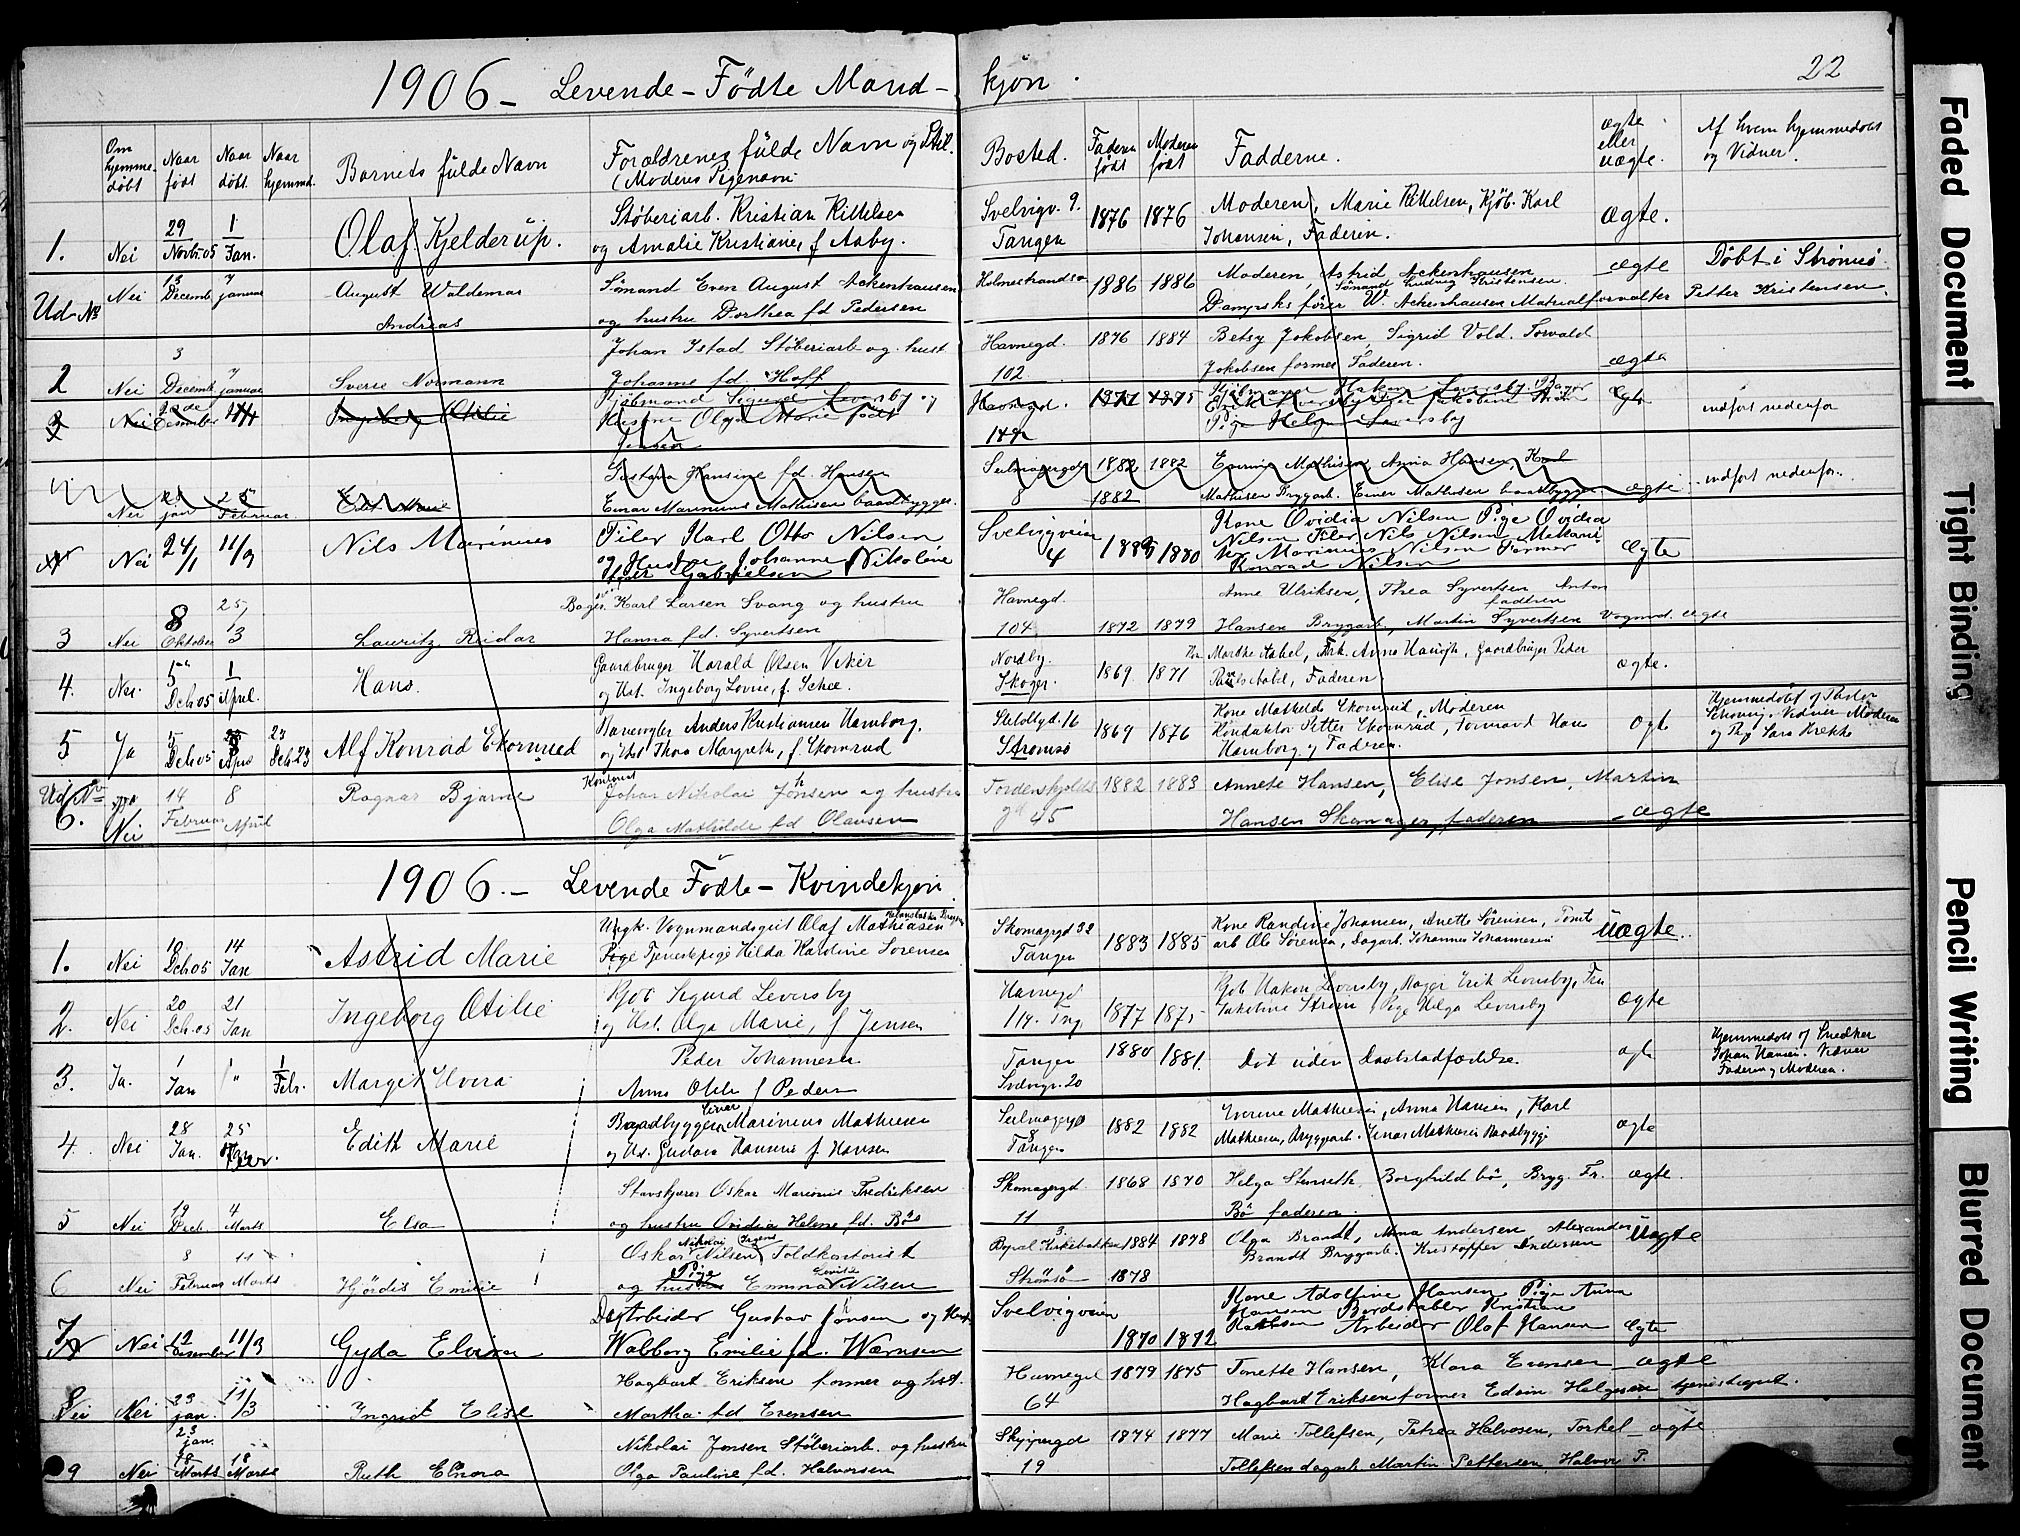 1906 - Levende-Födte Mand- kjøn. 22
Om hjemme-døbt
Naar født
Naar døbt.
Naar hjemmd.
Barnets fülde Navn
Forældrenes fülde Navn og Stil.
(Moderns Pigenavn
Bosted.
Faderen født
Moderen født
Fadderne.
ægte eller uægte.
Af hvem hjemmedøbt og Vidner.
1. Nei 29 Novbr. 05 1 Jan. Olaf Kjelderüp. Støberiarb. Kristian Kittelsen
og Amalie Kristiane, f Aaby. Svelvigv. 9. Tangen 1876 1876 Moderen, Marie Kittelsen, Kjøb. Karl
Johansen, Faderen. Ægte.
Ud No Nei 13 Decemb. 7 januar August Waldemar Andreas Sømand Even August Ackenhausen
og hustru Dorthea fd Pedersen Holmestrandsv 1886 1886 Moderen, Astrid Ackenhausen
Sømand Ludvig Kristensen
Dampsks fører W. Ackenhausen Materialforvalter Petter Kristensen. ægte Døbt i Strømsö
2 Nei 3 Decemb. 7 januar Sverre Normann Johan Istad Støberiarb og hust
Johanne fd. Hoff Havnegd. 102 1876 1884 Betsy Jakobsen, Sigrid Vold. Torvald
Jakobsen former Faderen. ægte
3 Nei Desember Ingeborg Otilie Kjøbmand Sigurd Leversby og
Hustru Olga Marie født Jensen Havnegd. 1877 1875 Kjøbmand Hakon Leversby. Bager
Pige Helga Leversby Ægte indført nedenfor
Nei jan 25 Februar Edit Marie Gustava Hansine fd. Hansen
Einar Marinius Mathisen baadbygger. Seilmagergd 8 1882 1882 1882 Mathisen Anna Hansen, Karl
Mathisen Bryggarb. Einer Mathisen baadbygger ægte indført nedenfor.
Nei 24/1 11/3 Nils Marinius Filer Karl Otto Nilsen
og Hustru Johanne Nikoline
Gabrielsen Svelvigveien 4 1880 Kone Ovidia Nilsen Pige Ovidia
Nilsen Filer Nils Nilsen Mekani
ker Marinius Nilsen Former
Konrad Nilsen Ægte
3 Nei 8 Oktober 25/3 Lauritz Reidar Bager Karl Larsen Svang og hustru
Hanna fd. Syvertsen Havnegd. 104 1872 1879 Anne Ulriksen, Thea Syvertsen Anton
fadren
Hansen Brygarb, Martin Syvertsen Vognmd. ægte
4. Nei. 5 Dcb 05 1 April. Hans. Gaardbruger Harald Olsen Viker
og Ust. Ingeborg Lovise, f. Schee. Nordby. Skoger. 1869. 1871 Marthe Aabel, Frk. Anna Haugh, Gaardbruger Peder
Aabel, Faderen. ægte.
5 Ja 5 Dcb 05 April 23 Dcb Alf Konrad Ekornrud Anders Kristiansen Hamborg.
og Ust Thora Margrethe, f. Ekornrud 16 Strømsø 1869 1876 Kone Mathilde Ekornrud, Moderen
Konduktør Petter Ekornrud, Formand Hans
Hamborg, og Faderen. ægte Hjemmedøbt af Pastor
Vidner Moderen
og Lara
Ud No 6. Nei 14 Februar 8 April Ragnar Bjarne Kontorist Johan Nikolai Jonsen og hustru
Olga Mathilde fd Olausen Tordenskjolds gd 45 1882 1883 Annete Hansen, Elise Jonsen, Martin
Hansen Skomager, faderen ægte
1906. - Levende Födte - Kvindekjøn.
1. Nei 10 Dcb 05 14 Jan Astrid Marie Ungk. Vognmandsgut Olaf Mathiasen
Pige Tjenestepige Hilda Kardine Sorensen Skomagergd 32 Tangen 1883 1885 Kone Randine Johansen, Anette Sörensen, Tomt
arb Ole Sørensen, Dagarb. Johannes Johannesen üægte.
2. Nei 20 Dcb. 05 21 Jan Ingeborg Otilie Kjøb Sigurd Leversby
og Ust. Olga Marie, f Jensen Havnegd 114. Tng. 1877 187 Kjøb Hakon Leversby, Bager Erik Leversby, Fru
Jakobine Strøm, Pige Helga Leversby ægte
3. Ja. 1 Jan 1 Febr. Margit Peder Johannesen
Anna Othilie f Peders Tangen Svelvigv. 20 1880 1881. Död uden Daabstadfæstelse. ægte Hjemmedøbt af Snedker
Johan Hansen. Vidner
Faderen og Moderen.
4. Nei 28 Jan. 25 Febr. Edith Marie Baadbygger Einar Marinius Mathiesen
og Ust. Gustava Hansine f. Hansen Seilmagergd 8 Tangen 1882 1882 Mathiesen, Anna Hansen, Karl
Mathiesen, Bryggarb. Einar Mathiesen Baadbygge ægte
5 Nei 19 Dceb. 4 Marts Elsa Stavskjærer Oskar Marinius Fredriksen
og hustru Ovidia Helene fd. Bø Skomagergd. 11 1868 1870 Helga Stenseth, Borghild bö, Bryg. Fr.
Bö faderen. ægte.
6 Nei 8 Februar 11 Marts Hjördis Emilie Oskar Nikolai Nilsen Toldkontorist
og Pige Emma Lovise Nilsen Kirkebakken 3. Strømsø 1884 1878 1878 Olga Brandt, Anna Andersen Alexander
Brandt Bryggarb. Kristoffer Andersen Üægte
7 Nei 12 Desember 11/3 Gyda Elvira Arbeider Gustav Jonsen og Hust.
Walborg Emilie fd. Wærnsen Svelvigveien 1870 1872 Kone Adolfine Hansen Pige Anna
Hansen Bordstabler Kristian
Arbeider Olaf Hansen Ægte
8 Nei 23 jan. 11/3 Ingrid Elise Hagbart Eriksen former og hst.
Martha fd Evensen Havnegd 64 1879 1875 Tonette Hansen, Klara Evensen ægte
Hagbart Eriksen former Edvin Helgesen tjenestegut.
9 Nei 23 jan. 18 Marts 18 Marts Ruth Elnora Nikolai Jonsen Støberiarb. og hustru
Olga Pauline fd. Halvorsen Skippergd 19 1874 1877 Marie Tollefsen, Petrea Halvosen, Torkel ægte.
Tollefsen dagarb. Martin Pettersen, Halvor P.
Faded Document
Tight Binding
Pencil Writing
Blurred Document